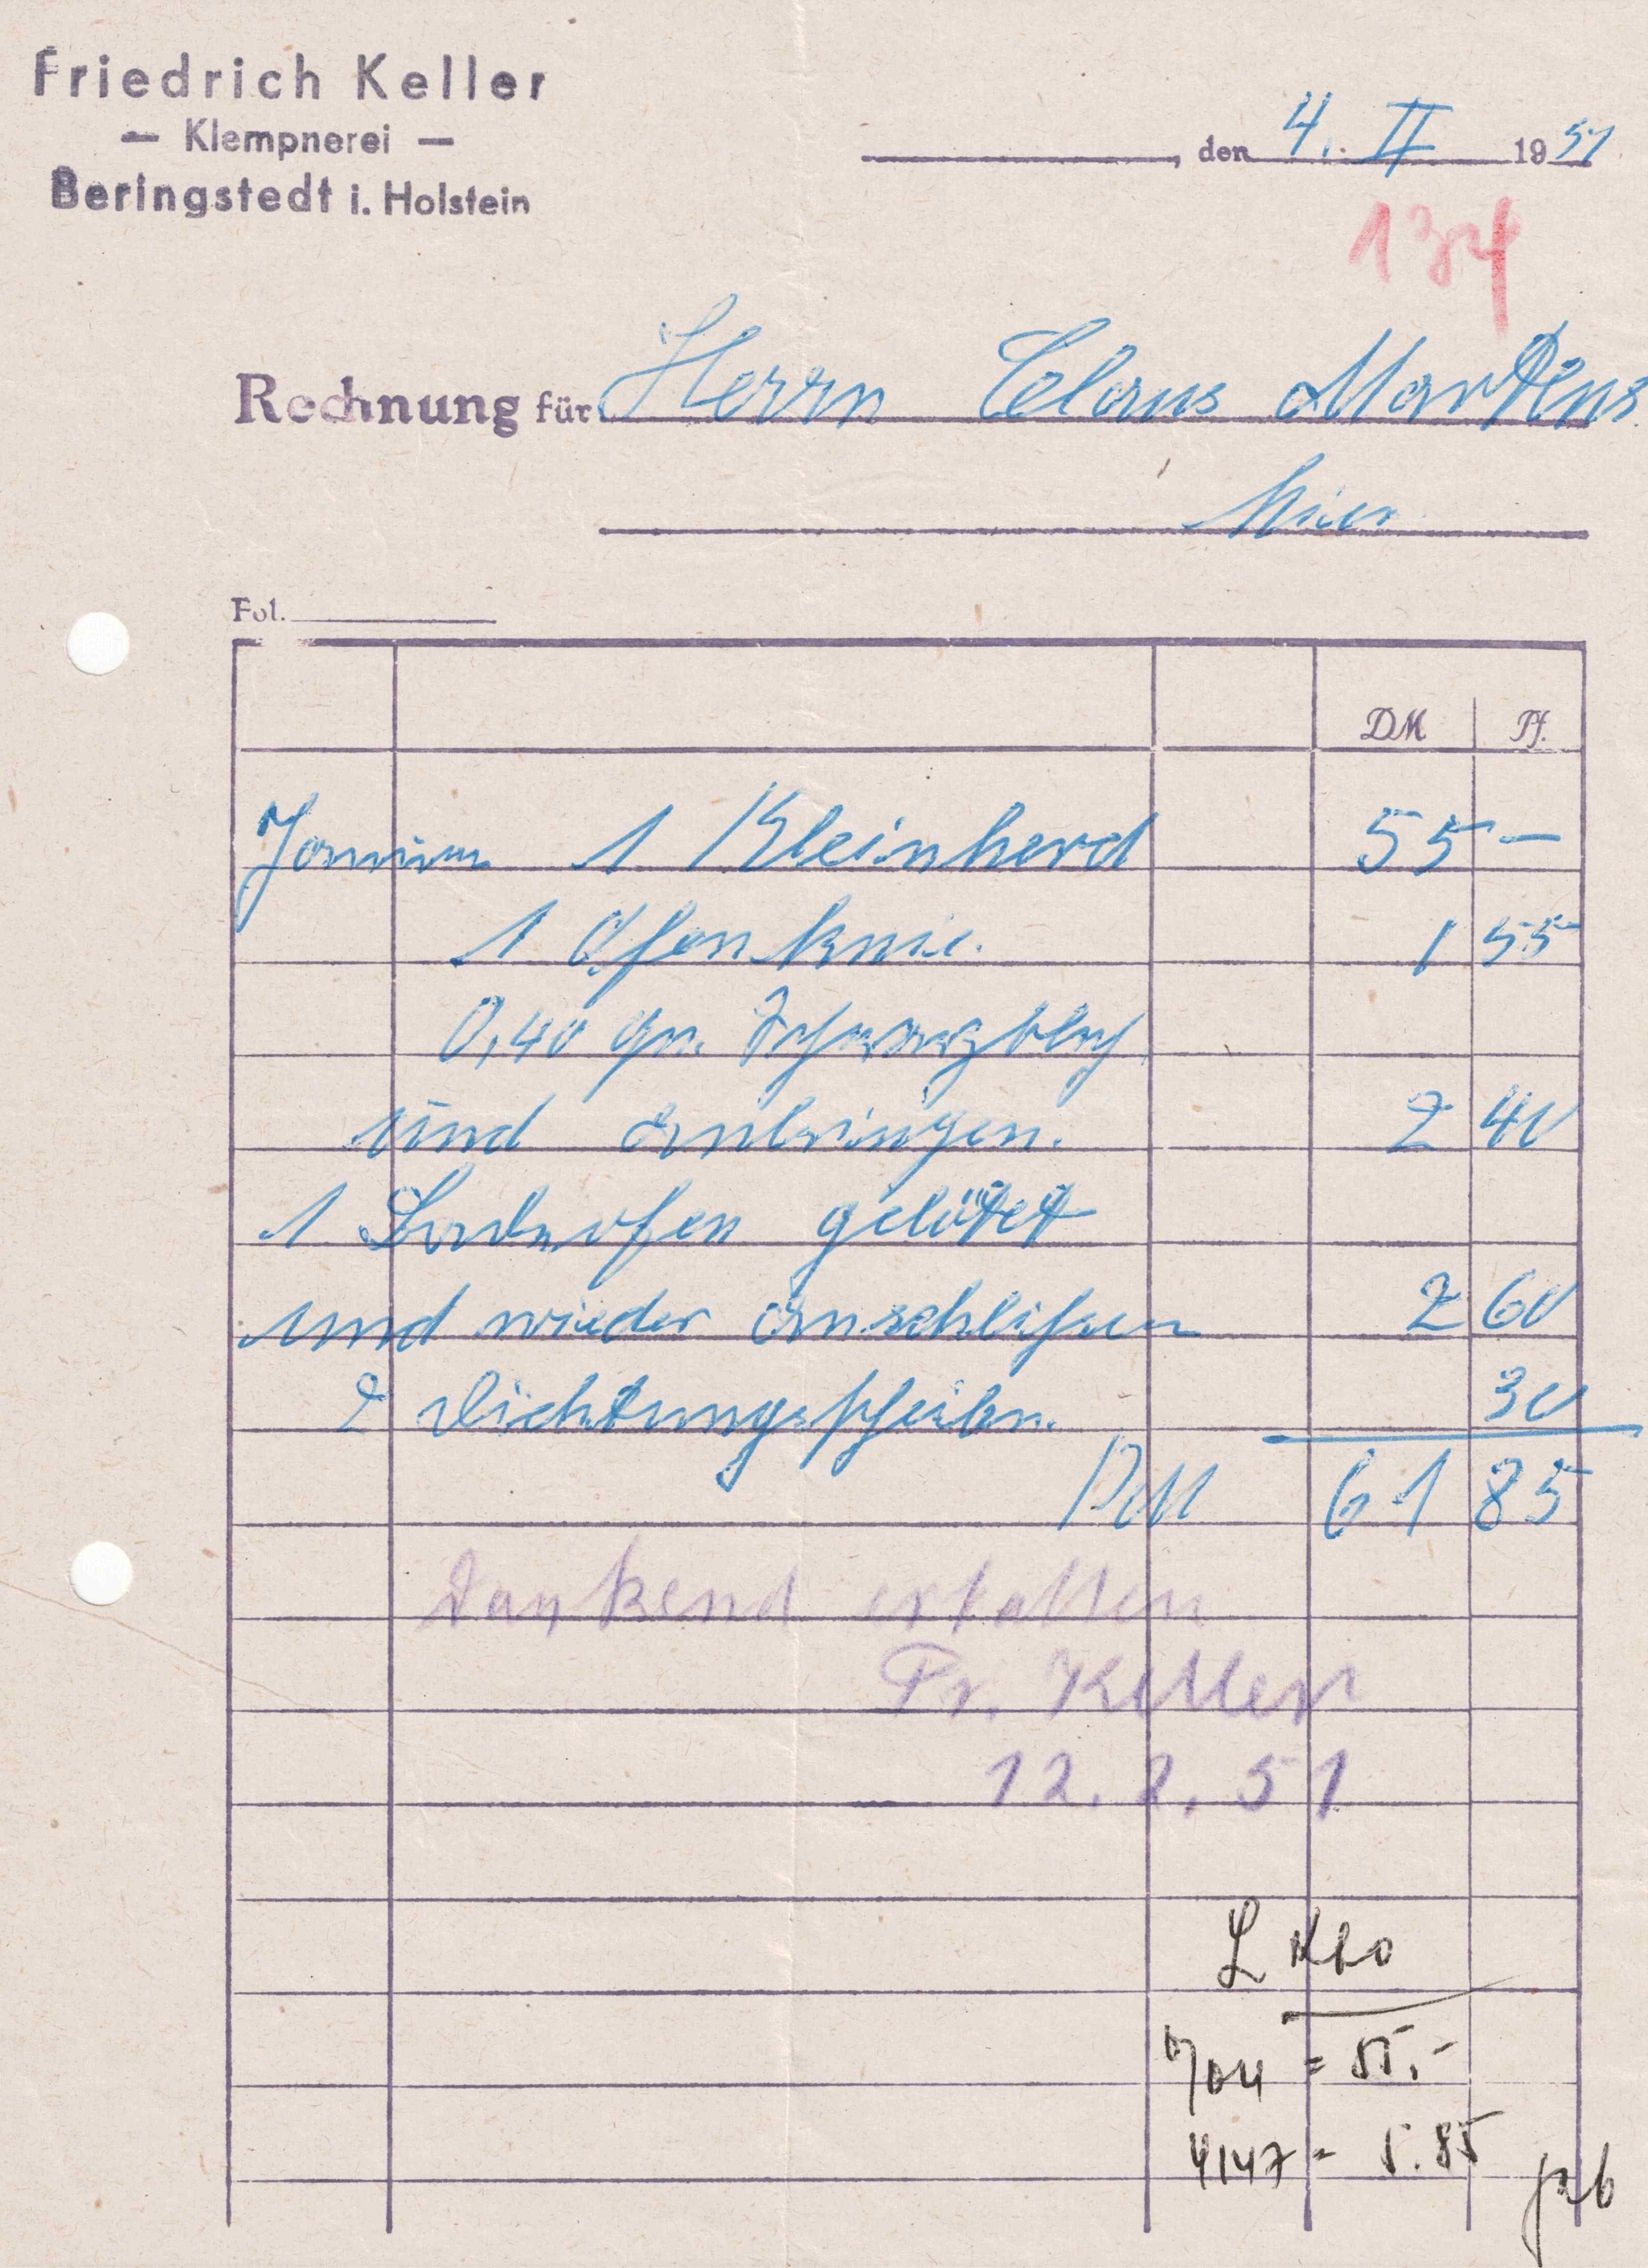 Friedrich Keller
— Klempnerei —
Beringstedt i. Holstein
, den 4. II 1951
134
Rechnung für Herrn Claus Martens
hier
Fol.
DM Pf.
Januar 1 Kleinherd 55 —
1 Ofenknie. 1 55
0,40 qm. Schwarzblech
und anbringen. 2 40
1 Badeofen gelötet
und wieder anschließen 2 60
2 Dichtungsscheiben. 30
DM 61 85
Dankend erhalten
Fr. Keller
12.2.51
704 = 55.-
4147 = 5.85